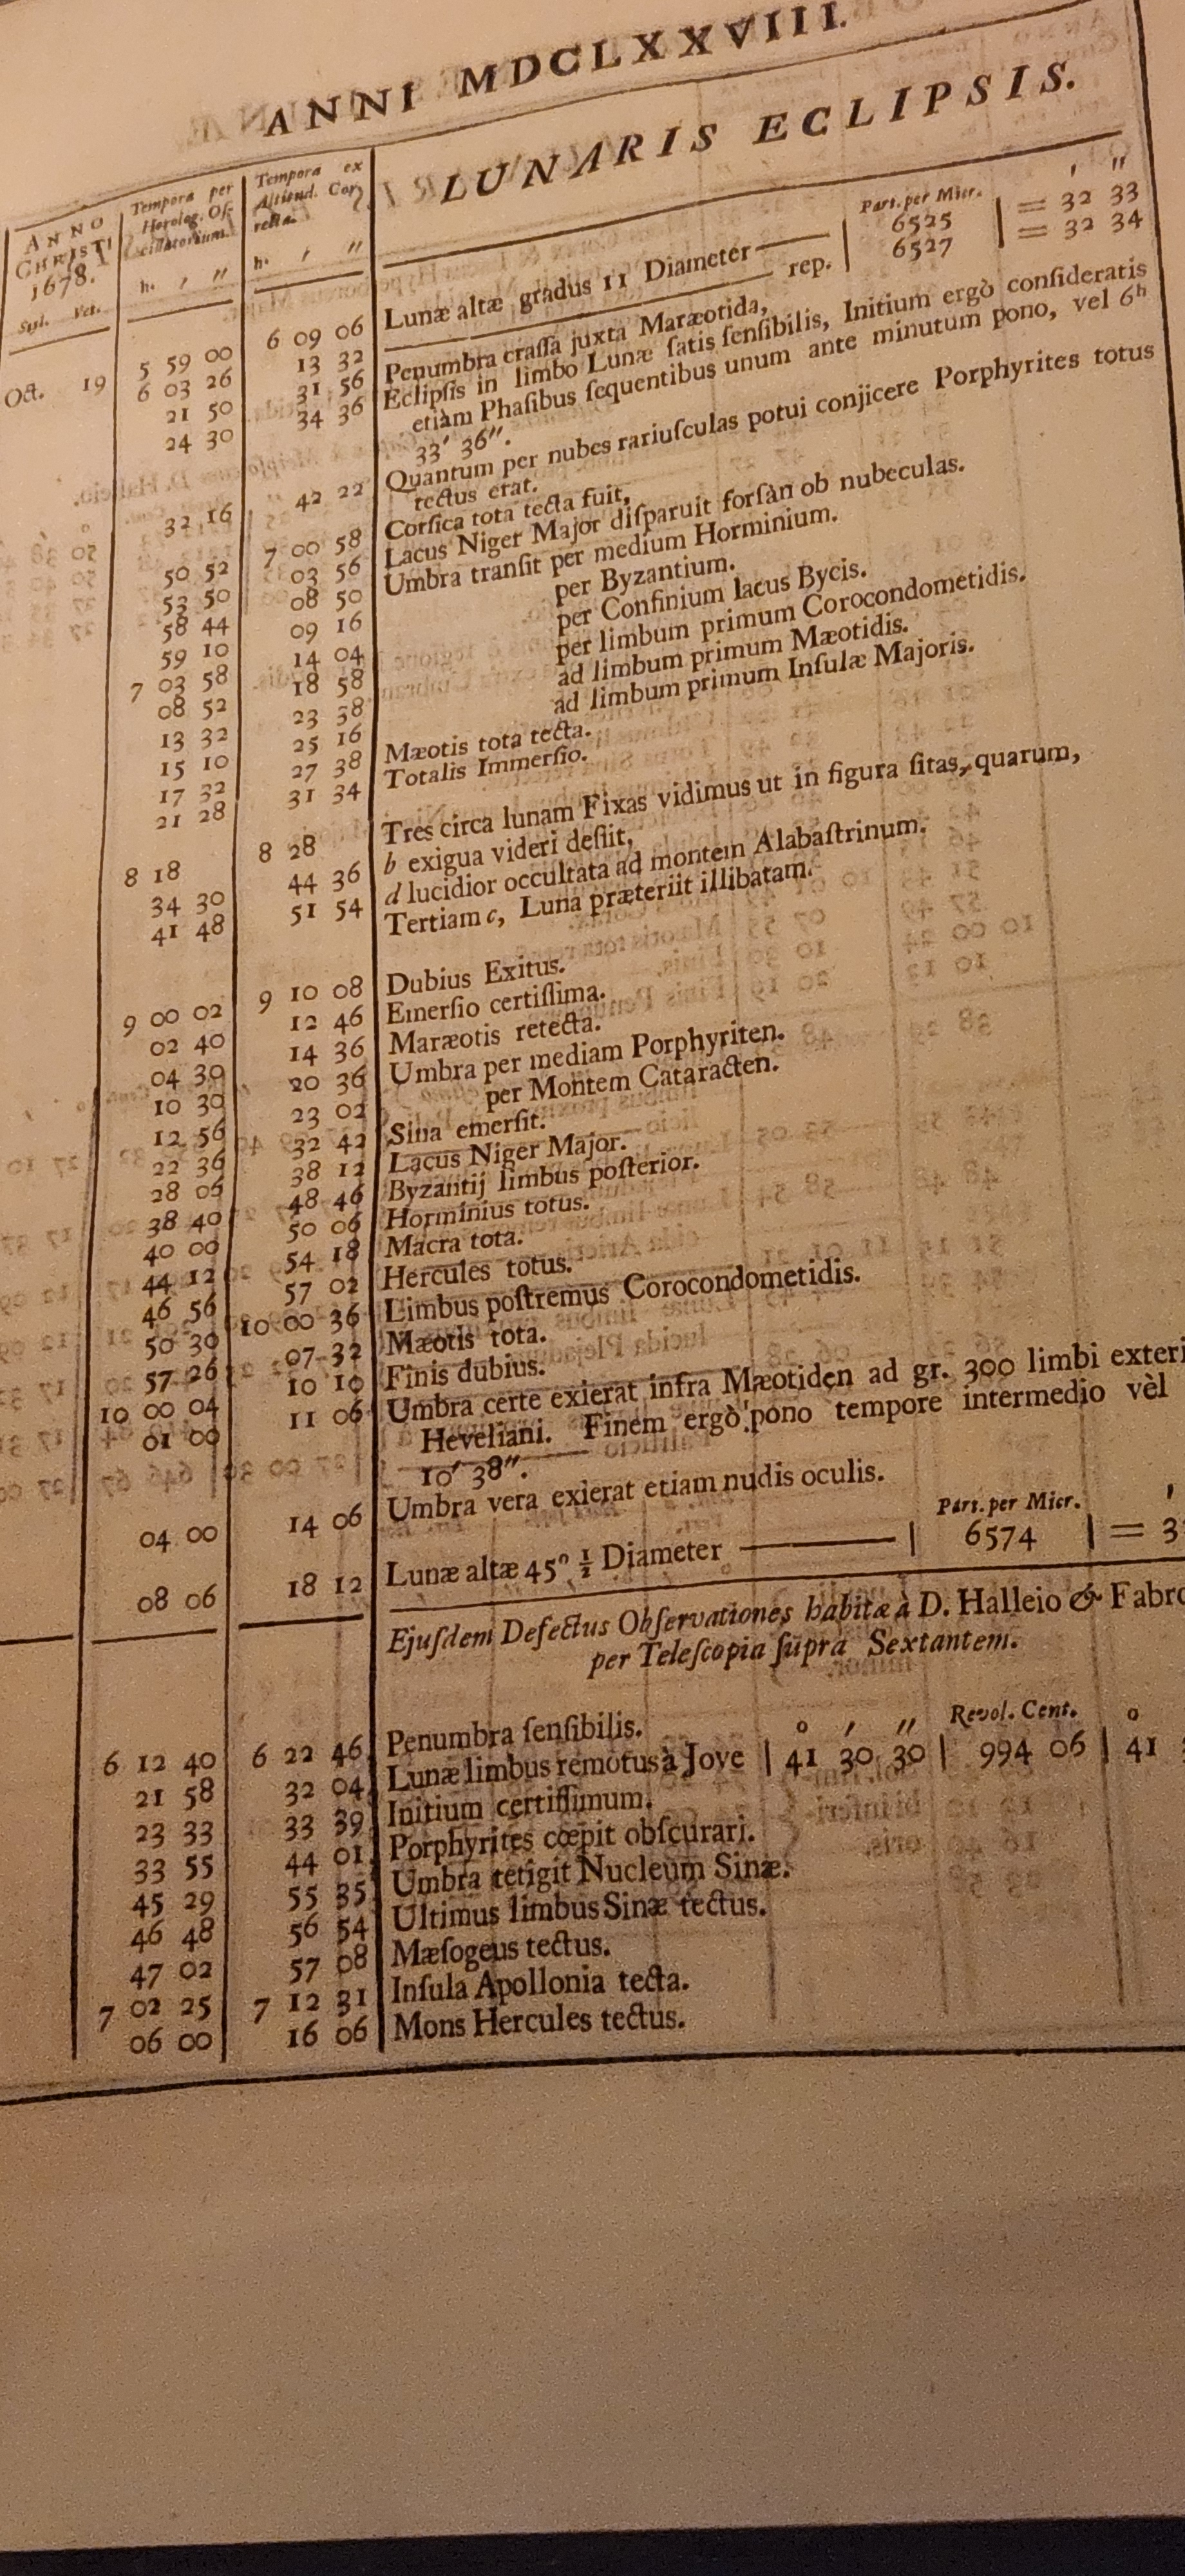 ANNI MDCLXXVIII.
ANNO CHRISTI 1678.
Styl. Vet.
Tempora per Horolog. Oſcillatorium.
h. ′ ″
Tempora ex Altitud. Correcta.
h. ′ ″
LUNARIS ECLIPSIS.
Part. per Micr. ′ ″
Oct. 19 5 59 00 6 09 06 Lunæ altæ gradus 11 Diameter 6525 = 32 33
6 03 26 13 32 rep. 6527 = 32 34
21 50 31 56 Penumbra craſſa juxta Maræotida,
24 30 34 36 Eclipſis in limbo Lunæ ſatis ſenſibilis, Initium ergò conſideratis
etiàm Phaſibus ſequentibus unum ante minutum pono, vel 6h
33′ 36″.
32 16 42 22 Quantum per nubes rariuſculas potui conjicere Porphyrites totus
tectus erat.
50 52 7 00 58 Corſica tota tecta fuit,
53 50 03 56 Lacus Niger Major diſparuit forſàn ob nubeculas.
58 44 08 50 Umbra tranſit per medium Horminium.
59 10 09 16 per Byzantium.
7 03 58 14 04 per Confinium lacus Bycis.
08 52 18 58 per limbum primum Corocondometidis.
13 32 23 38 ad limbum primum Mæotidis.
15 10 25 16 ad limbum primum Inſulæ Majoris.
17 32 27 38 Mæotis tota tecta.
21 28 31 34 Totalis Immerſio.
8 18 8 28 Tres circa lunam Fixas vidimus ut in figura ſitas, quarum,
34 30 44 36 b exigua videri deſiit,
41 48 51 54 d lucidior occultata ad montem Alabaſtrinum.
Tertiam c, Luna præteriit illibatam.
9 00 02 9 10 08 Dubius Exitus.
02 40 12 46 Emerſio certiſſima.
04 30 14 36 Maræotis retecta.
10 30 20 36 Umbra per mediam Porphyriten.
12 56 23 02 per Montem Cataracten.
22 36 32 42 Sina emerſit.
28 06 38 12 Lacus Niger Major.
38 40 48 46 Byzantij limbus poſterior.
40 00 50 06 Horminius totus.
44 12 54 18 Macra tota.
46 56 57 02 Hercules totus.
50 30 10 00 36 Limbus poſtremus Corocondometidis.
57 26 07 32 Mæotis tota.
10 00 04 10 10 Finis dubius.
01 00 11 06 Umbra certe exierat infra Mæotiden ad gr. 300 limbi exteri
Heveliani. Finem ergò pono tempore intermedio vèl
10′ 38″.
04 00 14 06 Umbra vera exierat etiam nudis oculis.
Part. per Micr. ′
08 06 18 12 Lunæ altæ 45° ½ Diameter 6574 = 3
Ejuſdem Defectus Obſervationes habitæ à D. Halleio & Fabro
per Teleſcopia ſupra Sextantem.
6 12 40 6 22 46 Penumbra ſenſibilis. ° ′ ″ Revol. Cent. °
21 58 32 04 Lunæ limbus remotus à Jove 41 30 30 994 06 41
23 33 33 39 Initium certiſſimum.
33 55 44 01 Porphyrites cœpit obſcurari.
45 29 55 35 Umbra tetigit Nucleum Sinæ.
46 48 56 54 Ultimus limbus Sinæ tectus.
47 02 57 08 Mæſogeus tectus.
7 02 25 7 12 31 Inſula Apollonia tecta.
06 00 16 06 Mons Hercules tectus.